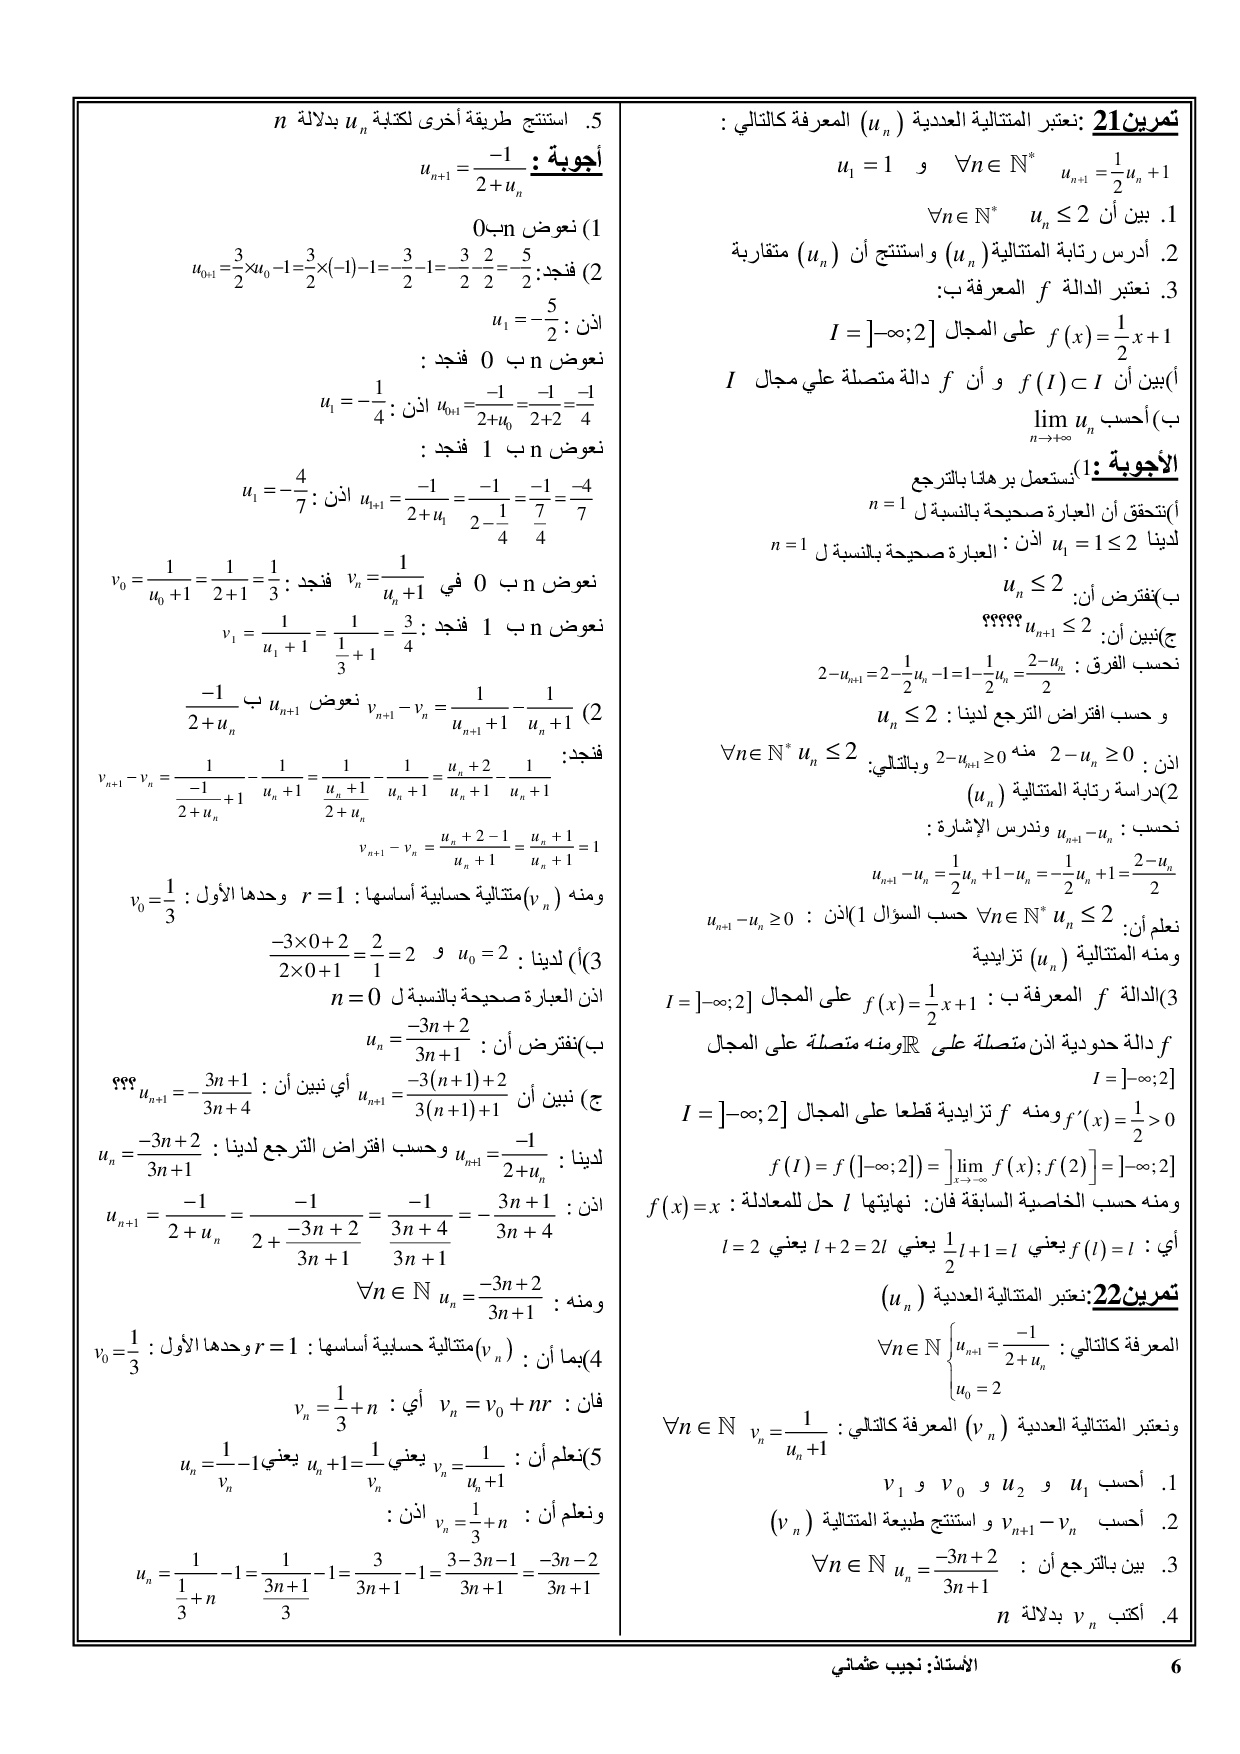 تمرين21 :نعتبر المتتالية العددية (u_n) المعرفة كالتالي :
u_{n+1} = \frac{1}{2}u_n + 1 ∀n ∈ ℕ* و u_1 = 1
1. بين أن u_n ≤ 2 ∀n ∈ ℕ*
2. أدرس رتابة المتتالية (u_n) واستنتج أن (u_n) متقاربة
3. نعتبر الدالة f المعرفة ب:
f(x) = \frac{1}{2}x + 1 على المجال I = ]−∞;2]
أ)بين أن f(I) ⊂ I و أن f دالة متصلة علي مجال I
ب) أحسب \lim_{n→+∞} u_n
الأجوبة :1)نستعمل برهانا بالترجع
أ)نتحقق أن العبارة صحيحة بالنسبة ل n = 1
لدينا u_1 = 1 ≤ 2 اذن : العبارة صحيحة بالنسبة ل n = 1
ب)نفترض أن: u_n ≤ 2
ج)نبين أن: u_{n+1} ≤ 2 ؟؟؟؟؟
نحسب الفرق : 2 − u_{n+1} = 2 − \frac{1}{2}u_n − 1 = 1 − \frac{1}{2}u_n = \frac{2−u_n}{2}
و حسب افتراض الترجع لدينا : u_n ≤ 2
اذن : 2 − u_n ≥ 0 منه 2 − u_{n+1} ≥ 0 وبالتالي: u_n ≤ 2 ∀n ∈ ℕ*
2)دراسة رتابة المتتالية (u_n)
نحسب : u_{n+1} − u_n وندرس الإشارة :
u_{n+1} − u_n = \frac{1}{2}u_n + 1 − u_n = −\frac{1}{2}u_n + 1 = \frac{2−u_n}{2}
نعلم أن: u_n ≤ 2 ∀n ∈ ℕ* حسب السؤال 1)اذن : u_{n+1} − u_n ≥ 0
ومنه المتتالية (u_n) تزايدية
3)الدالة f المعرفة ب : f(x) = \frac{1}{2}x + 1 على المجال I = ]−∞;2]
f دالة حدودية اذن متصلة على ℝ ومنه متصلة على المجال
I = ]−∞;2]
f′(x) = \frac{1}{2} > 0 ومنه f تزايدية قطعا على المجال I = ]−∞;2]
f(I) = f(]−∞;2]) = ]\lim_{x→−∞} f(x); f(2)] = ]−∞;2]
ومنه حسب الخاصية السابقة فان: نهايتها l حل للمعادلة : f(x) = x
أي : f(l) = l يعني \frac{1}{2}l + 1 = l يعني l + 2 = 2l يعني l = 2
تمرين22:نعتبر المتتالية العددية (u_n)
المعرفة كالتالي : { u_{n+1} = \frac{−1}{2+u_n} ∀n ∈ ℕ
u_0 = 2
ونعتبر المتتالية العددية (v_n) المعرفة كالتالي : v_n = \frac{1}{u_n+1} ∀n ∈ ℕ
1. أحسب u_1 و u_2 و v_0 و v_1
2. أحسب v_{n+1} − v_n و استنتج طبيعة المتتالية (v_n)
3. بين بالترجع أن : u_n = \frac{−3n+2}{3n+1} ∀n ∈ ℕ
4. أكتب v_n بدلالة n
5. استنتج طريقة أخرى لكتابة u_n بدلالة n
أجوبة : u_{n+1} = \frac{−1}{2+u_n}
1) نعوض nب0
2) فنجد: u_{0+1} = \frac{3}{2}×u_0 − 1 = \frac{3}{2}×(−1) − 1 = −\frac{3}{2} − 1 = −\frac{3}{2} − \frac{2}{2} = −\frac{5}{2}
اذن : u_1 = −\frac{5}{2}
نعوض n ب 0 فنجد :
u_{0+1} = \frac{−1}{2+u_0} = \frac{−1}{2+2} = \frac{−1}{4} اذن : u_1 = −\frac{1}{4}
نعوض n ب 1 فنجد :
u_{1+1} = \frac{−1}{2+u_1} = \frac{−1}{2−\frac{1}{4}} = \frac{−1}{\frac{7}{4}} = \frac{−4}{7} اذن : u_1 = −\frac{4}{7}
نعوض n ب 0 في v_n = \frac{1}{u_n+1} فنجد : v_0 = \frac{1}{u_0+1} = \frac{1}{2+1} = \frac{1}{3}
نعوض n ب 1 فنجد : v_1 = \frac{1}{u_1+1} = \frac{1}{\frac{1}{3}+1} = \frac{3}{4}
2) v_{n+1} − v_n = \frac{1}{u_{n+1}+1} − \frac{1}{u_n+1} نعوض u_{n+1} ب \frac{−1}{2+u_n}
فنجد:
v_{n+1} − v_n = \frac{1}{\frac{−1}{2+u_n}+1} − \frac{1}{u_n+1} = \frac{1}{\frac{u_n+1}{2+u_n}} − \frac{1}{u_n+1} = \frac{u_n+2}{u_n+1} − \frac{1}{u_n+1}
v_{n+1} − v_n = \frac{u_n+2−1}{u_n+1} = \frac{u_n+1}{u_n+1} = 1
ومنه (v_n) متتالية حسابية أساسها : r = 1 وحدها الأول : v_0 = \frac{1}{3}
3)أ) لدينا : u_0 = 2 و \frac{−3×0+2}{2×0+1} = \frac{2}{1} = 2
اذن العبارة صحيحة بالنسبة ل n = 0
ب)نفترض أن : u_n = \frac{−3n+2}{3n+1}
ج) نبين أن u_{n+1} = \frac{−3(n+1)+2}{3(n+1)+1} أي نبين أن : u_{n+1} = −\frac{3n+1}{3n+4} ؟؟؟
لدينا : u_{n+1} = \frac{−1}{2+u_n} وحسب افتراض الترجع لدينا : u_n = \frac{−3n+2}{3n+1}
اذن : u_{n+1} = \frac{−1}{2+u_n} = \frac{−1}{2+\frac{−3n+2}{3n+1}} = \frac{−1}{\frac{3n+4}{3n+1}} = −\frac{3n+1}{3n+4}
ومنه : u_n = \frac{−3n+2}{3n+1} ∀n ∈ ℕ
4)بما أن : (v_n) متتالية حسابية أساسها : r = 1 وحدها الأول : v_0 = \frac{1}{3}
فان : v_n = v_0 + nr أي : v_n = \frac{1}{3} + n
5)نعلم أن : v_n = \frac{1}{u_n+1} يعني u_n + 1 = \frac{1}{v_n} يعني u_n = \frac{1}{v_n} − 1
ونعلم أن : v_n = \frac{1}{3} + n اذن :
u_n = \frac{1}{\frac{1}{3}+n} − 1 = \frac{1}{\frac{3n+1}{3}} − 1 = \frac{3}{3n+1} − 1 = \frac{3−3n−1}{3n+1} = \frac{−3n−2}{3n+1}
الأستاذ: نجيب عثماني
6